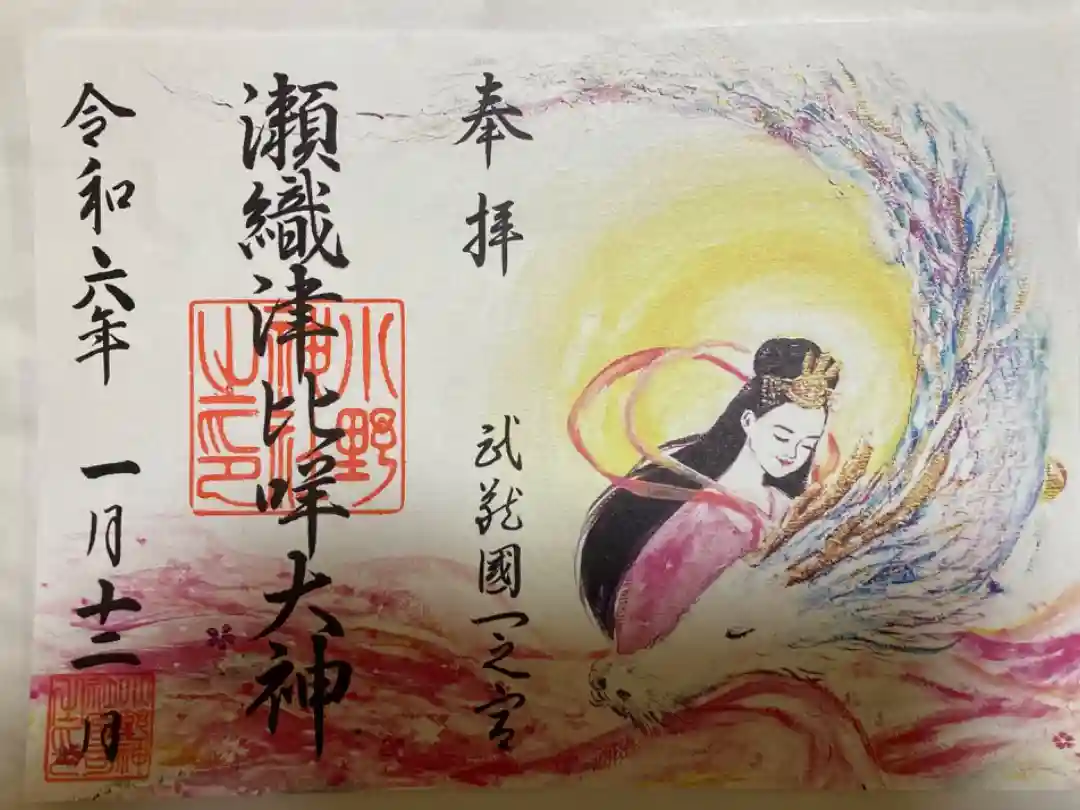 奉拝
武蔵國一之宮
瀬織津比咩大神
小野神社之印
令和六年 一月十二日